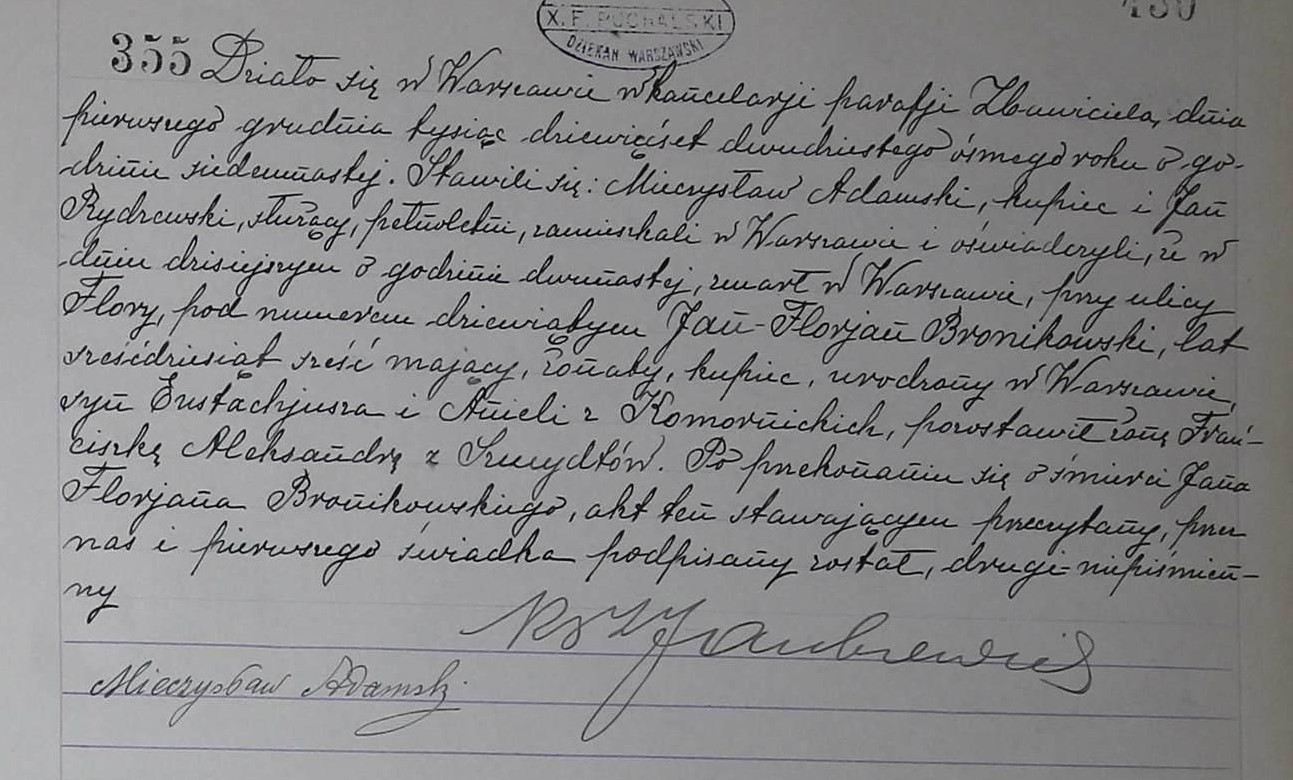 430
X. F. PUCHALSKI
DZIEKAN WARSZAWSKI
355 Działo się w Warszawie w kancelarji parafji Zbawiciela, dnia
pierwszego grudnia tysiąc dziewięćset dwudziestego ósmego roku o go-
dzinie siedemnastej. Stawili się: Mieczysław Adamski, kupiec i Jan
Rydzewski, służący, pełnoletni, zamieszkali w Warszawie i oświadczyli, że w
dniu dzisiejszym o godzinie dwunastej, zmarł w Warszawie, przy ulicy
Flory, pod numerem dziewiątym Jan-Florjan Bronikowski, lat
sześćdziesiąt sześć mający, żonaty, kupiec, urodzony w Warszawie,
syn Eustachjusza i Anieli z Komornickich, pozostawił żonę Fran-
ciszkę Aleksandrę z Szmydtów. Po przekonaniu się o śmierci Jana
Florjana Bronikowskiego, akt ten stawającym przeczytany, przez
nas i pierwszego świadka podpisany został, drugi niepiśmien-
ny
Mieczysław Adamski